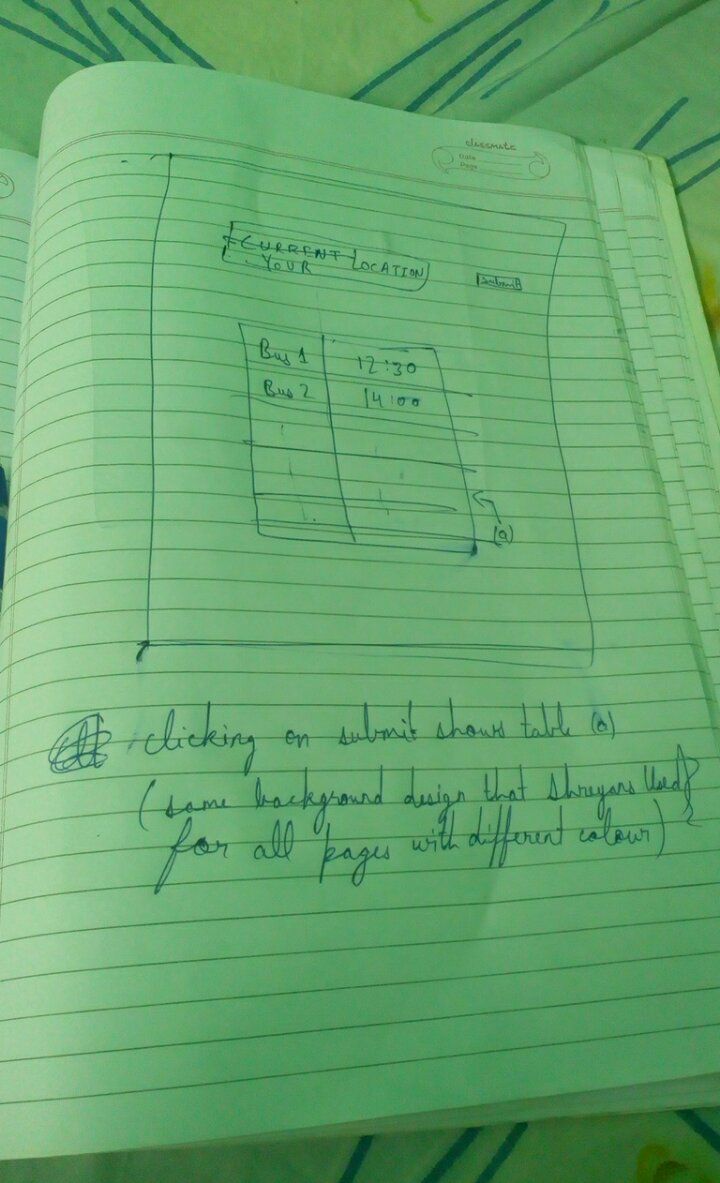 classmate
Date
Page
CURRENT LOCATION
YOUR
Submit
Bus 1 12:30
Bus 2 14:00
(a)
clicking on submit shows table (a)
(same background design that Shreyans used
for all pages with different colour)